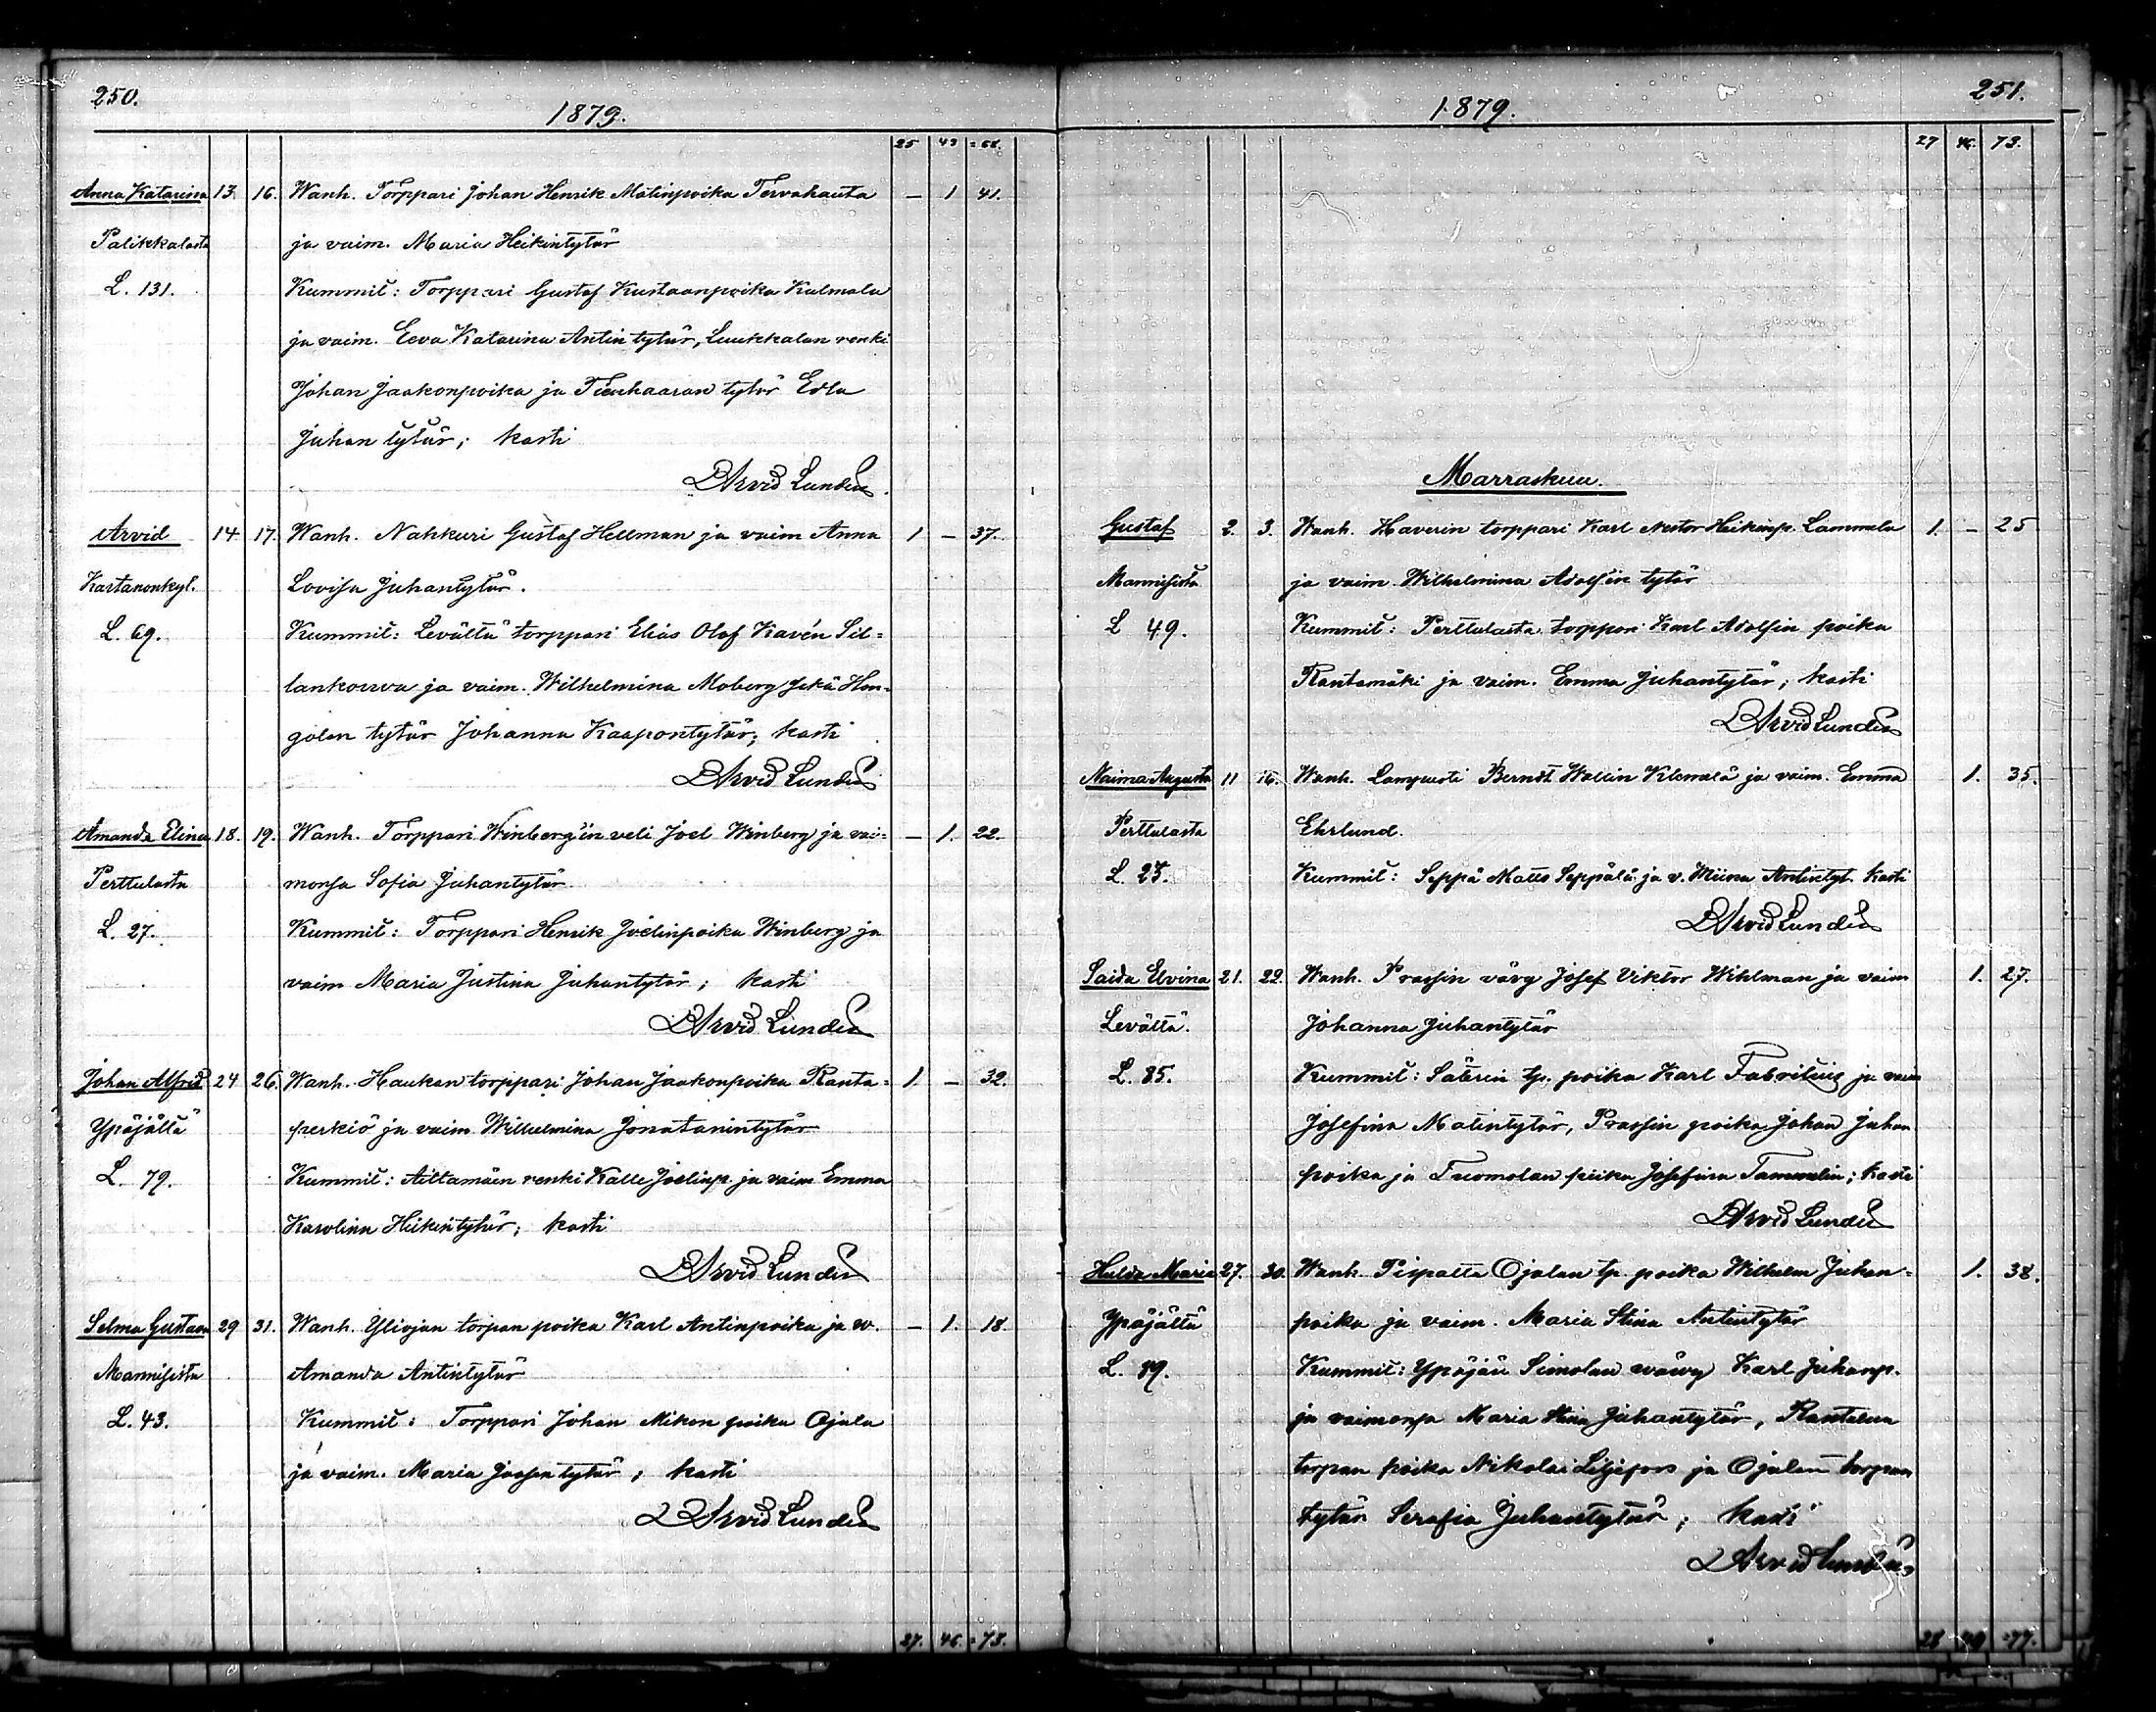 250.
1879.
25 43 = 68.
Anna Katarina 13. 16. Wanh. Torppari Johan Henrik Matinpoika Tervahauta — 1 41.
Palikkalasta ja vaim. Maria Heikintytär
L. 131. Kummit: Torppari Gustaf Kustaanpoika Kulmala
ja vaim. Eeva Katarina Antin tytär, Luukkalan renki
Johan Jaakonpoika ja Tienhaaran tytär Edla
Juhan tytär; kasti
Arvid Lundén
Arvid 14 17. Wanh. Nahkuri Gustaf Hellman ja vaim Anna 1 — 37.
Kartanonkyl. Lovisa Juhantytär.
L. 69. Kummit: Levältä torppari Elias Olof Kavén Sil=
lankorva ja vaim. Wilhelmina Moberg sekä Hon=
golan tytär Johanna Kaapontytär; kasti
Arvid Lundén
Amanda Elina 18. 19. Wanh. Torppari Winberg'in veli Joel Winberg ja vai= — 1. 22.
Perttulasta monsa Sofia Juhantytär
L. 27. Kummit: Torppari Henrik Joelinpoika Winberg ja
vaim Maria Justina Juhantytär; kasti
Arvid Lundén
Johan Alfred 24 26. Wanh. Haukan torppari Johan Jaakonpoika Ranta= 1. — 32.
Ypäjältä perkiö ja vaim Wilhelmina Jonatanintytär
L. 79. Kummit: Aittamäen renki Kalle Joelinp. ja vaim Emma
Karolina Heikintytär; kasti
Arvid Lundén
Selma Gustava 29 31. Wanh. Yliojan torpan poika Karl Antinpoika ja w. — 1. 18
Mannisista Amanda Antintytär
L. 43. Kummit: Torppari Johan Mikon poika Ojala
ja vaim. Maria Joosen tytär; kasti
Arvid Lundén
27. 46. = 73.
251.
1879.
27 46. 73.
Marraskuu.
Gustaf 2. 3. Wanh. Haverin torppari Karl Nestor Heikinp. Lammela 1. — 25
Mannisista ja vaim. Wilhelmina Adolfin tytär
L 49. Kummit: Perttulasta torppari Karl Adolfin poika
Rantamäki ja vaim. Emma Juhantytär; kasti
Arvid Lundén
Naima Augusta 11 16. Wanh. Lampuoti Berndt Wallin Klemelä ja vaim. Emma 1. 35.
Perttulasta Ehrlund.
L. 23. Kummit: Seppä Matts Seppälä ja v. Miina Antintyt. kasti
Arvid Lundén
Saida Elvina 21. 22. Wanh. Prassin vävy Josef Viktor Wihlman ja vaim 1. 27.
Levältä. Johanna Juhantytär
L. 85. Kummit: Säterin tp. poika Karl Fabritius ja vaim
Josefina Matintytär, Prassin poika Johan Juhan
poika ja Tuomolan piika Josefina Tammelin; kasti
Arvid Lundén
Hulda Maria 27. 30. Wanh. Pispalta Ojalan tp. poika Wilhelm Juhan= 1. 38.
Ypäjältä poika ja vaim. Maria Stina Antintytär
L. 89. Kummit: Ypäjän Simolan wäwy Karl Juhanp.
ja vaimonsa Maria Stina Juhantytär, Rantalan
torpan poika Nikolai Liljefors ja Ojalan torpan
tytär Serafia Juhantytär; kasti
Arvid Lundén
28 49 = 77.